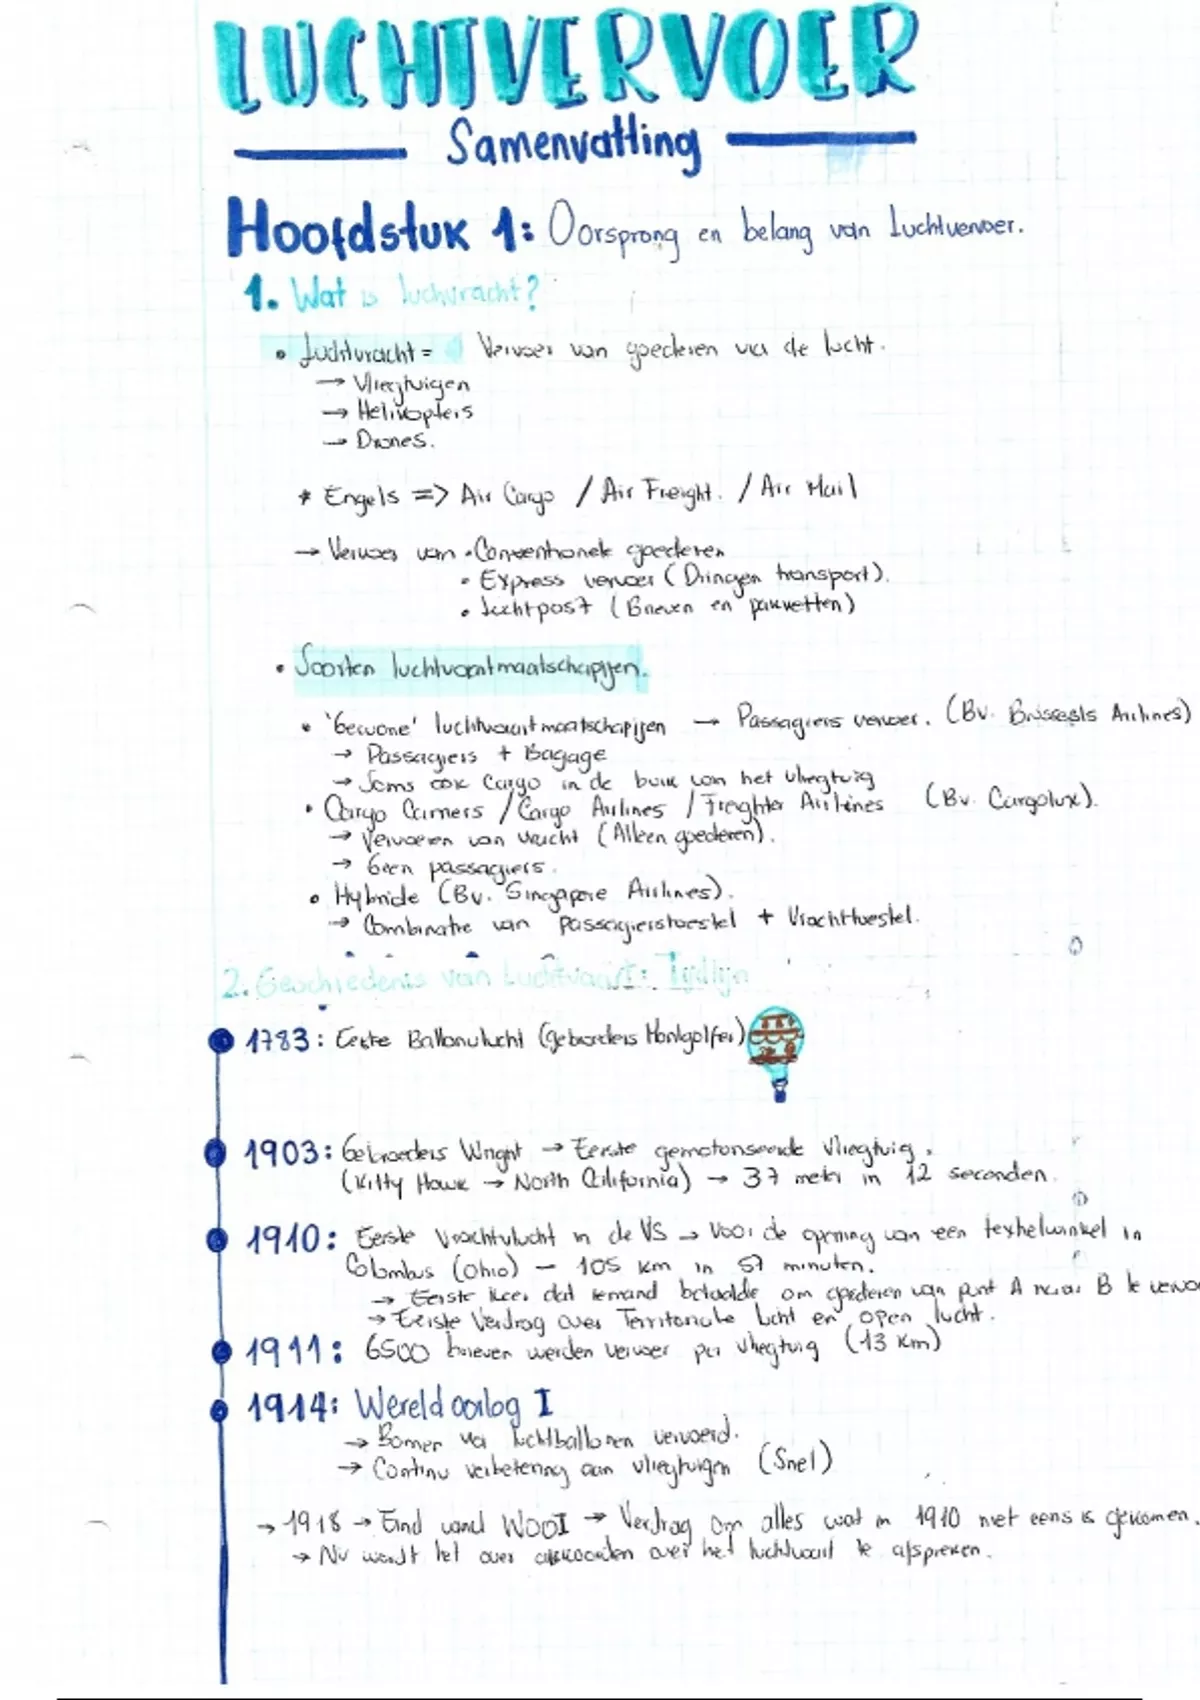 LUCHTVERVOER
Samenvatting
Hoofdstuk 1: Oorsprong en belang van luchtvervoer.
1. Wat is luchtvracht?
• Luchtvracht = Vervoer van goederen via de lucht.
→ Vliegtuigen
→ Helikopters
→ Drones.
* Engels => Air Cargo / Air Freight. / Air Mail
→ Vervoer van • Conventionele goederen
• Express vervoer (Dringen transport).
• Luchtpost (Brieven en pakketten)
• Soorten luchtvaartmaatschappijen.
• 'Gewone' luchtvaartmaatschapijen → Passagiers vervoer. (Bv. Brussels Airlines)
→ Passagiers + Bagage
→ Soms ook Cargo in de buik van het vliegtuig
• Cargo Carriers / Cargo Airlines / Freighter Airlines (Bv. Cargolux).
→ Vervoeren van vracht (Alleen goederen).
→ Geen passagiers.
• Hybride (Bv. Singapore Airlines).
→ Combinatie van passagierstoestel + Vrachttoestel.
2. Geschiedenis van Luchtvaart: Tijdlijn
1783: Eerste Ballonvlucht (gebroeders Montgolfier)
1903: Gebroeders Wright → Eerste gemotoriseerde vliegtuig.
(Kitty Hawk → North California) → 37 meter in 12 seconden.
1910: Eerste Vrachtvlucht in de VS → Voor de opening van een textielwinkel in
Columbus (Ohio) – 105 km in 57 minuten.
→ Eerste keer dat iemand betaalde om goederen van punt A naar B te vervo
→ Eerste Verdrag over Territoriale lucht en open lucht.
1911: 6500 brieven werden vervoer per vliegtuig (13 km)
1914: Wereldoorlog I
→ Bomen via luchtballonen vervoerd.
→ Continu verbetering aan vliegtuigen (Snel)
→ 1918 → Eind van WOOI → Verdrag om alles wat in 1910 niet eens is gekomen.
→ Nu wordt het over akkoorden over het luchtvaart te afspreken.